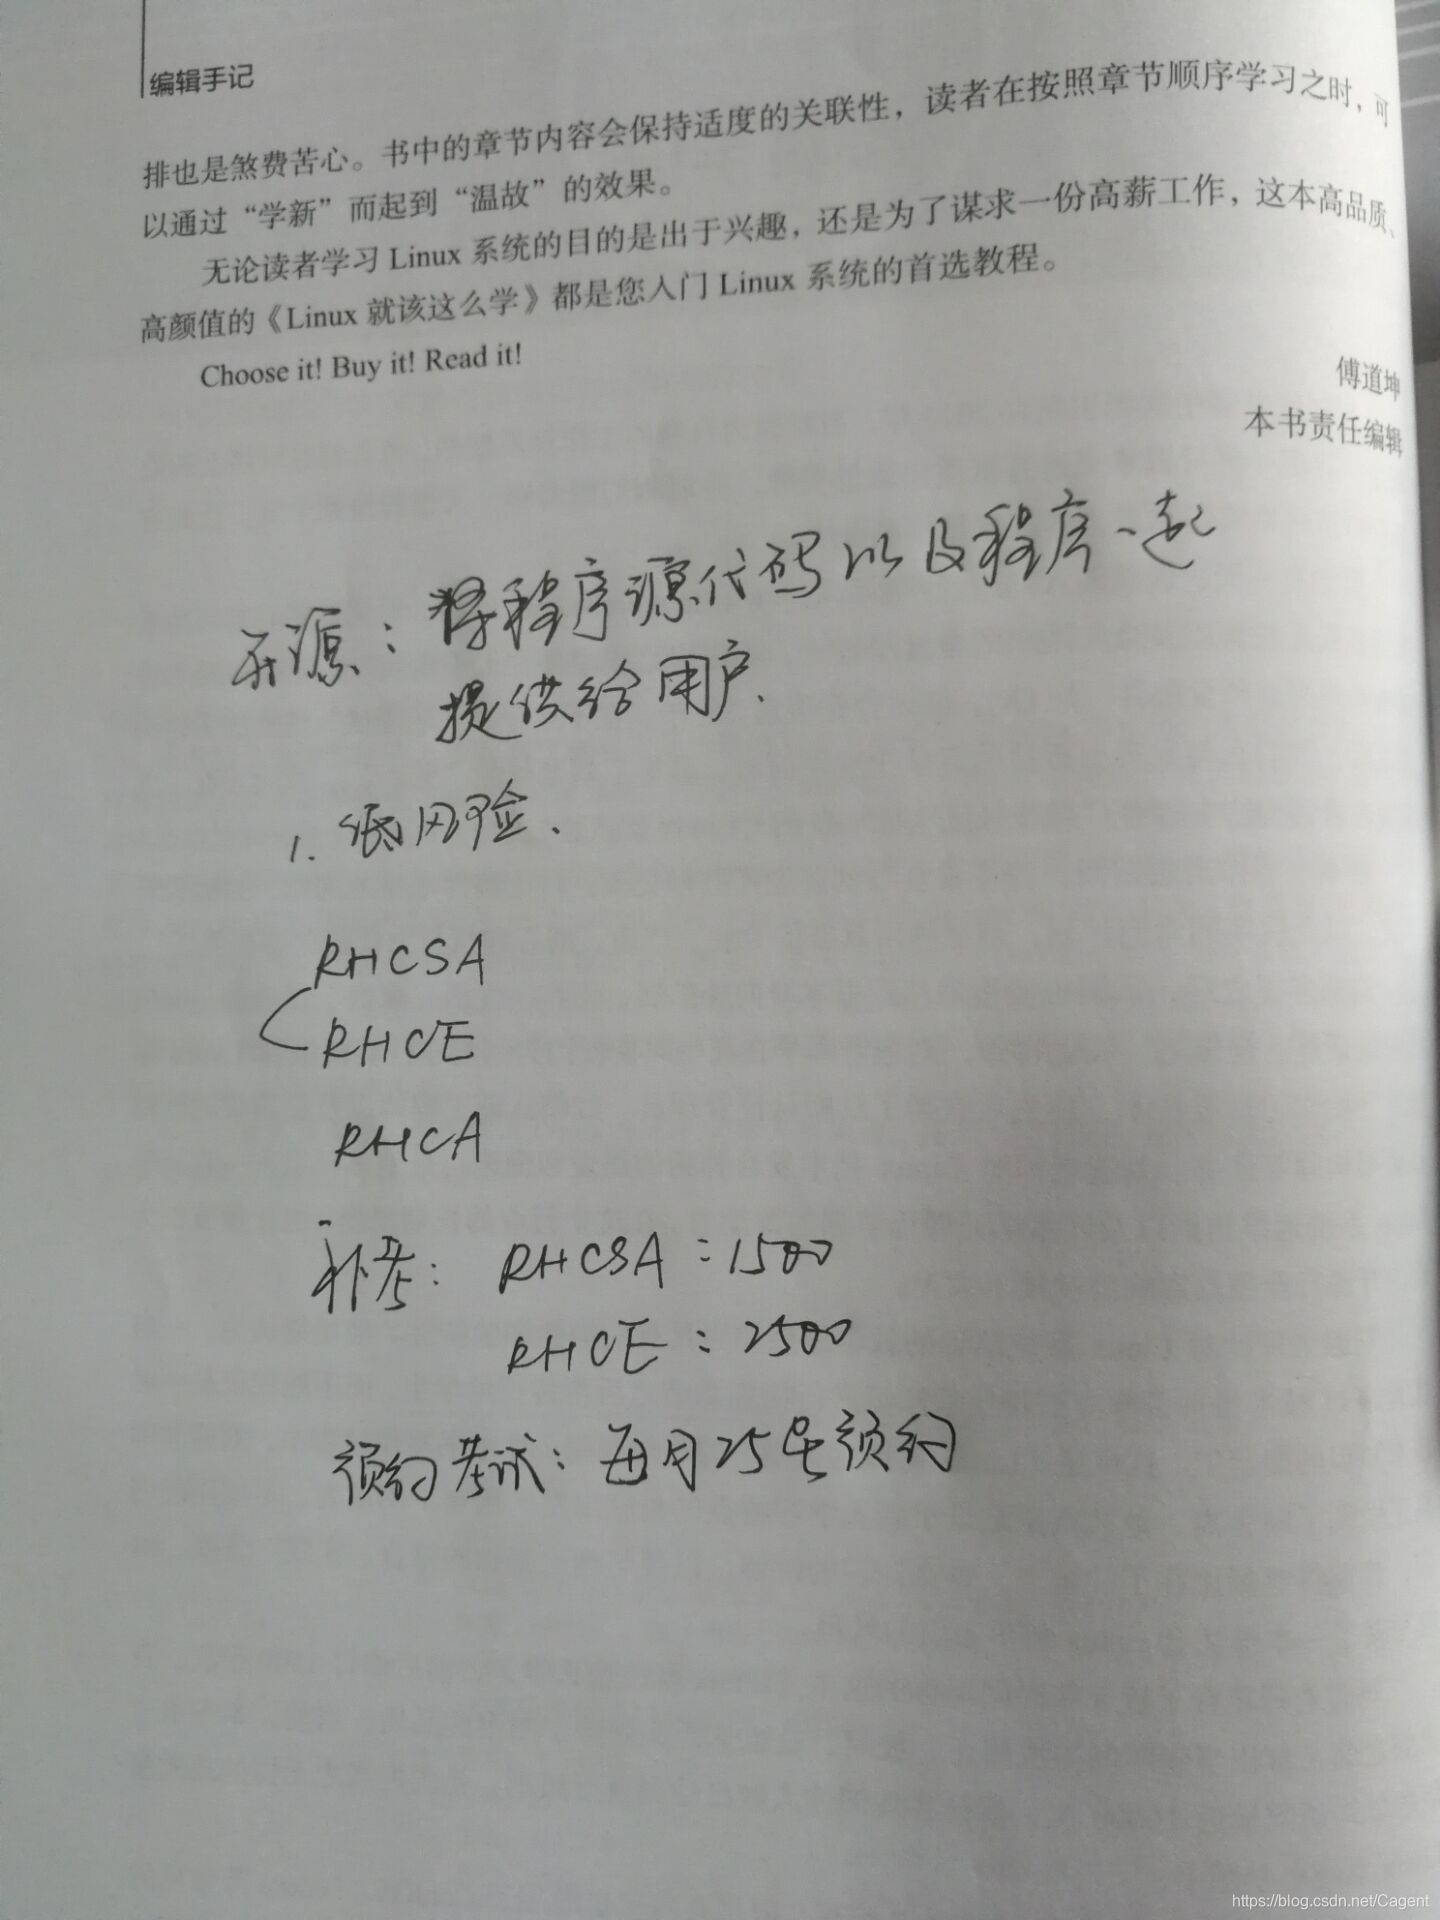 编辑手记
排也是煞费苦心。书中的章节内容会保持适度的关联性，读者在按照章节顺序学习之时，可
以通过“学新”而起到“温故”的效果。
无论读者学习 Linux 系统的目的是出于兴趣，还是为了谋求一份高薪工作，这本高品质、
高颜值的《Linux 就该这么学》都是您入门 Linux 系统的首选教程。
Choose it! Buy it! Read it!
傅道坤
本书责任编辑
开源：将程序源代码以及程序一起
提供给用户.
1. 低风险.
RHCSA
RHCE
RHCA
补考： RHCSA：1500
RHCE：2500
预约考试：每月25号预约
https://blog.csdn.net/Cagent